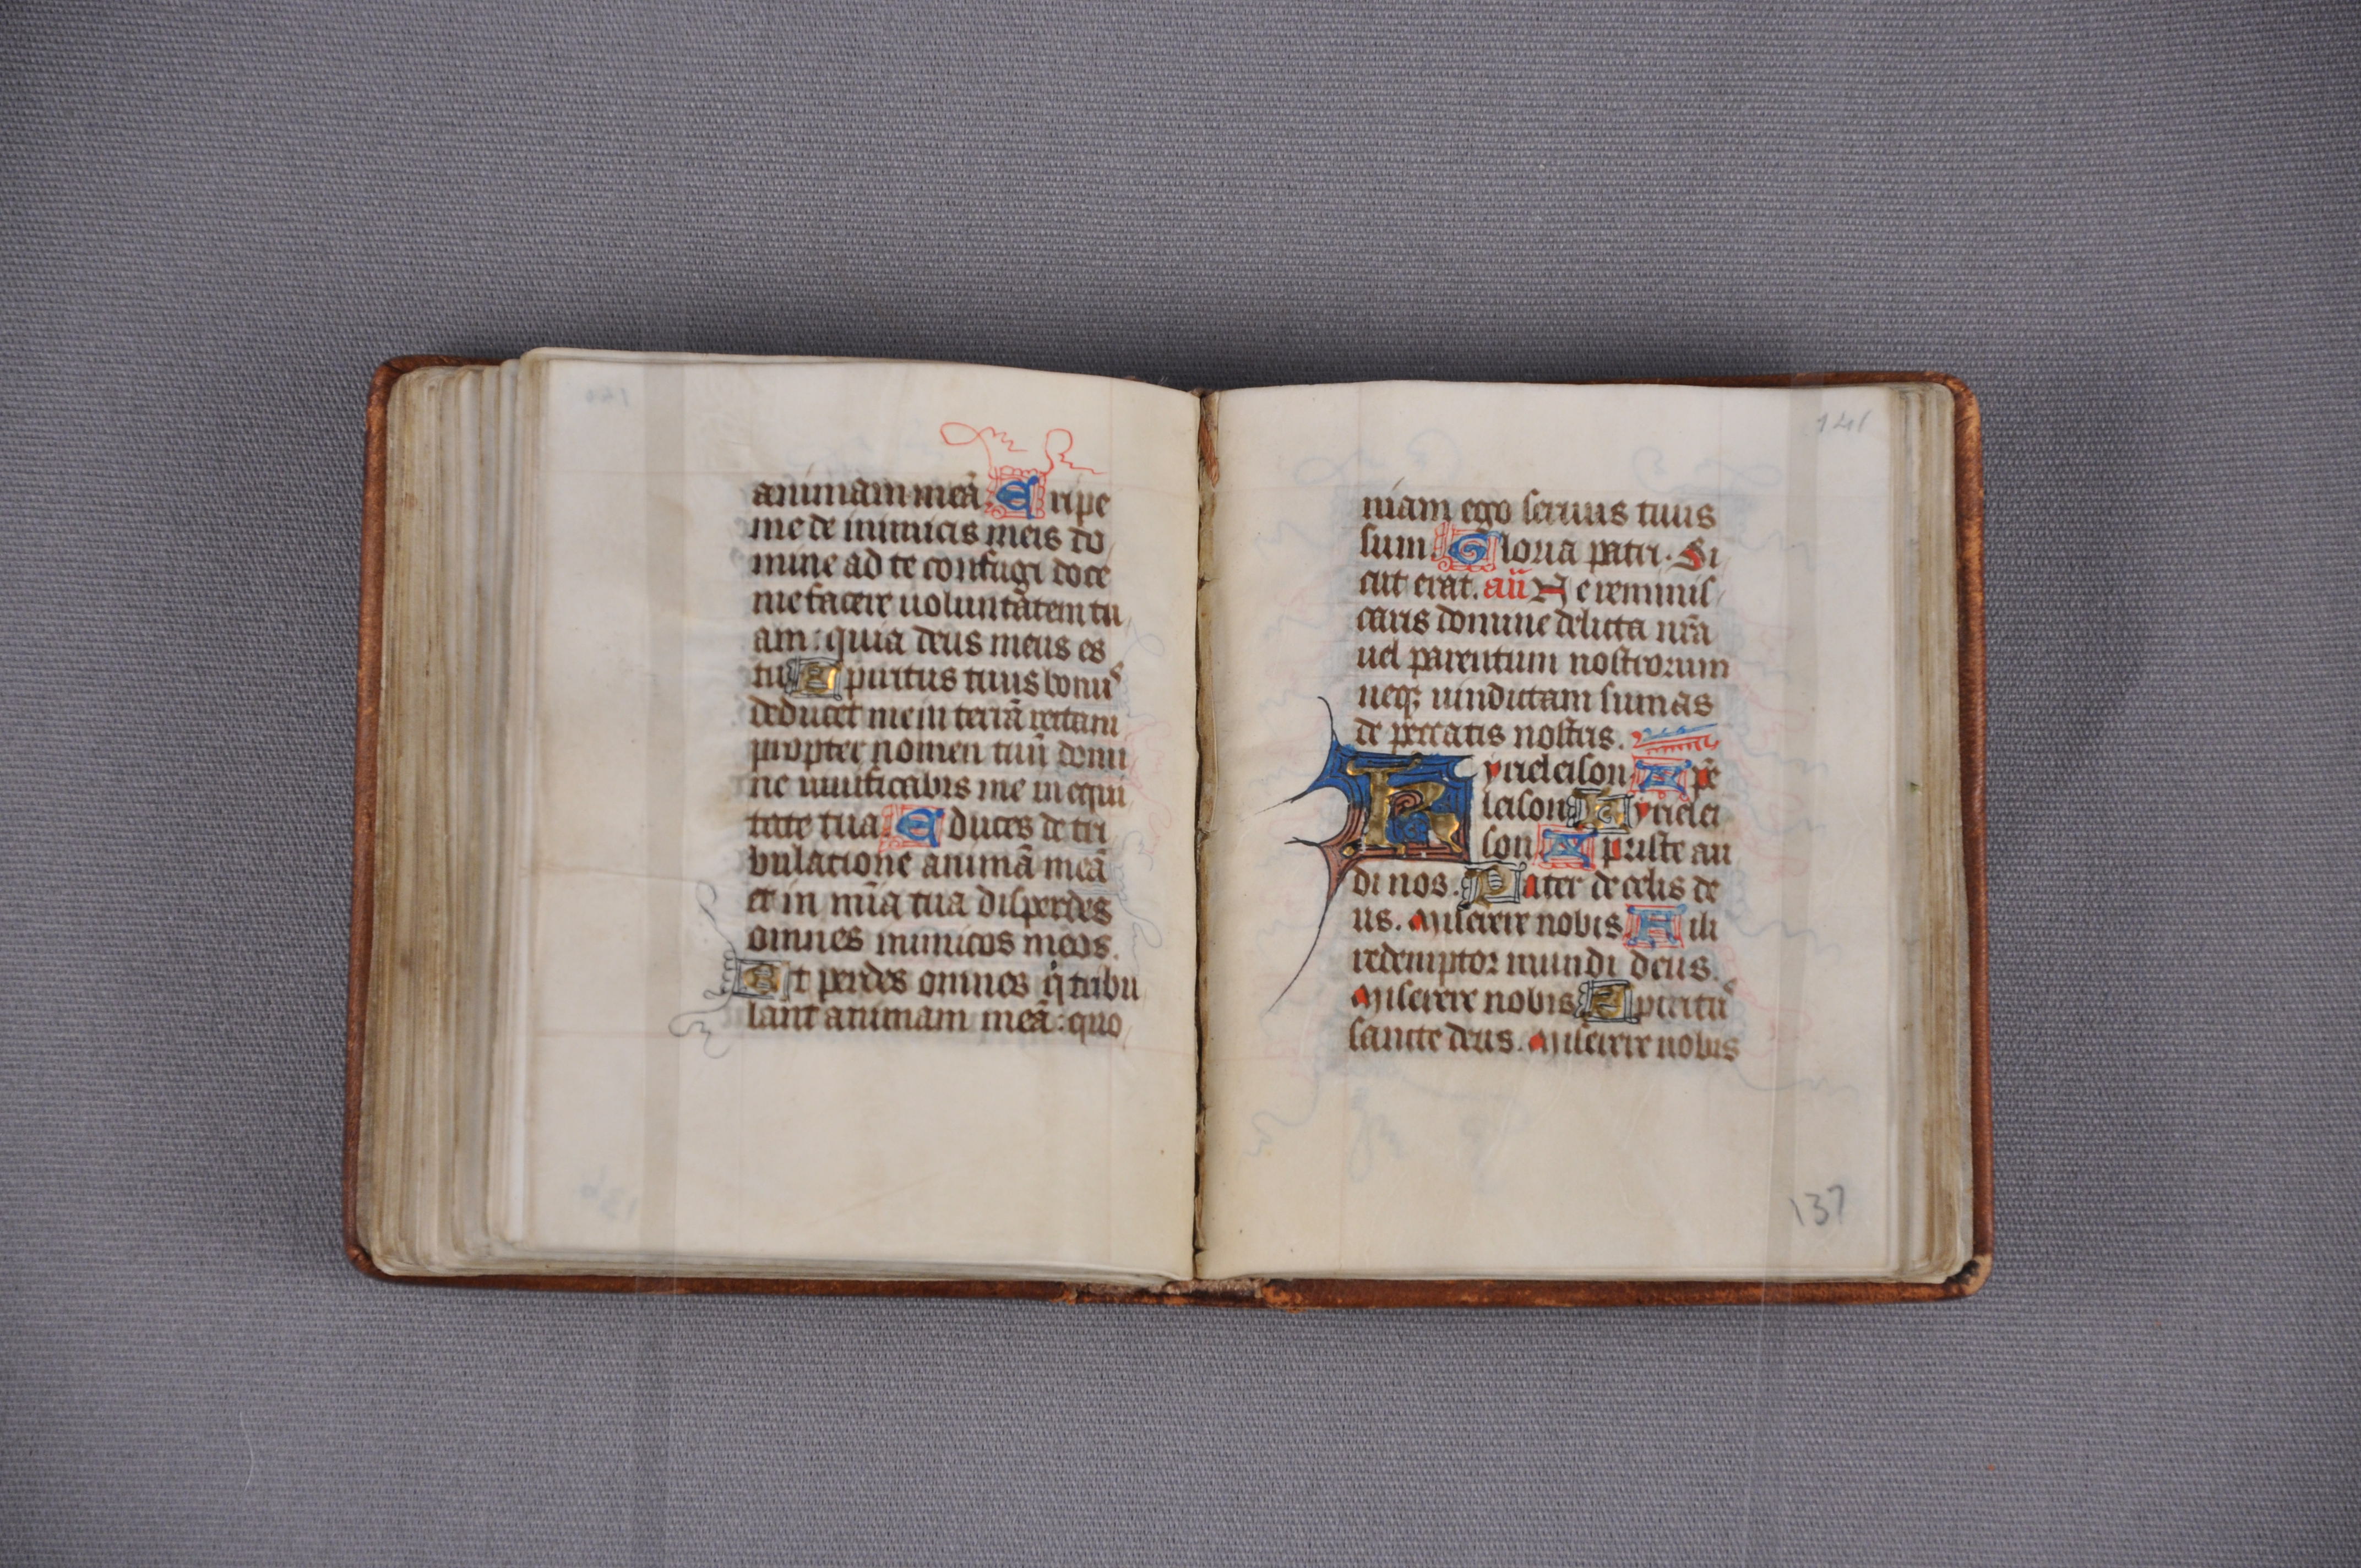 animam meā. Eripe
me de inimicis meis do
mine ad te confugi doce
me facere uoluntatem tu
am: quia deus meus es
tu Spiritus tuus bonus
deducet me in terrā rectam
propter nomen tuū domi
ne uiuificabis me in equi
tate tua. Educes de tri
bulacione animā meā
et in mīa tua disperdes
omnes inimicos meos.
Et perdes omnes q̄ tribu
lant animam meā: quo
141
niam ego seruus tuus
sum. Gloria patri. Si
cut erat. an̄ Ne reminis
caris domine delicta nr̄a
uel parentum nostrorum
neqꝫ uindictam sumas
de peccatis nostris.
Kyrieleison Xp̄e
leison Kyrielei
son Xpriste au
di nos. Pater de celis de
us. Miserere nobis Fili
redemptor mundi deus.
Miserere nobis Spiritus
sancte deus. Miserere nobis
137